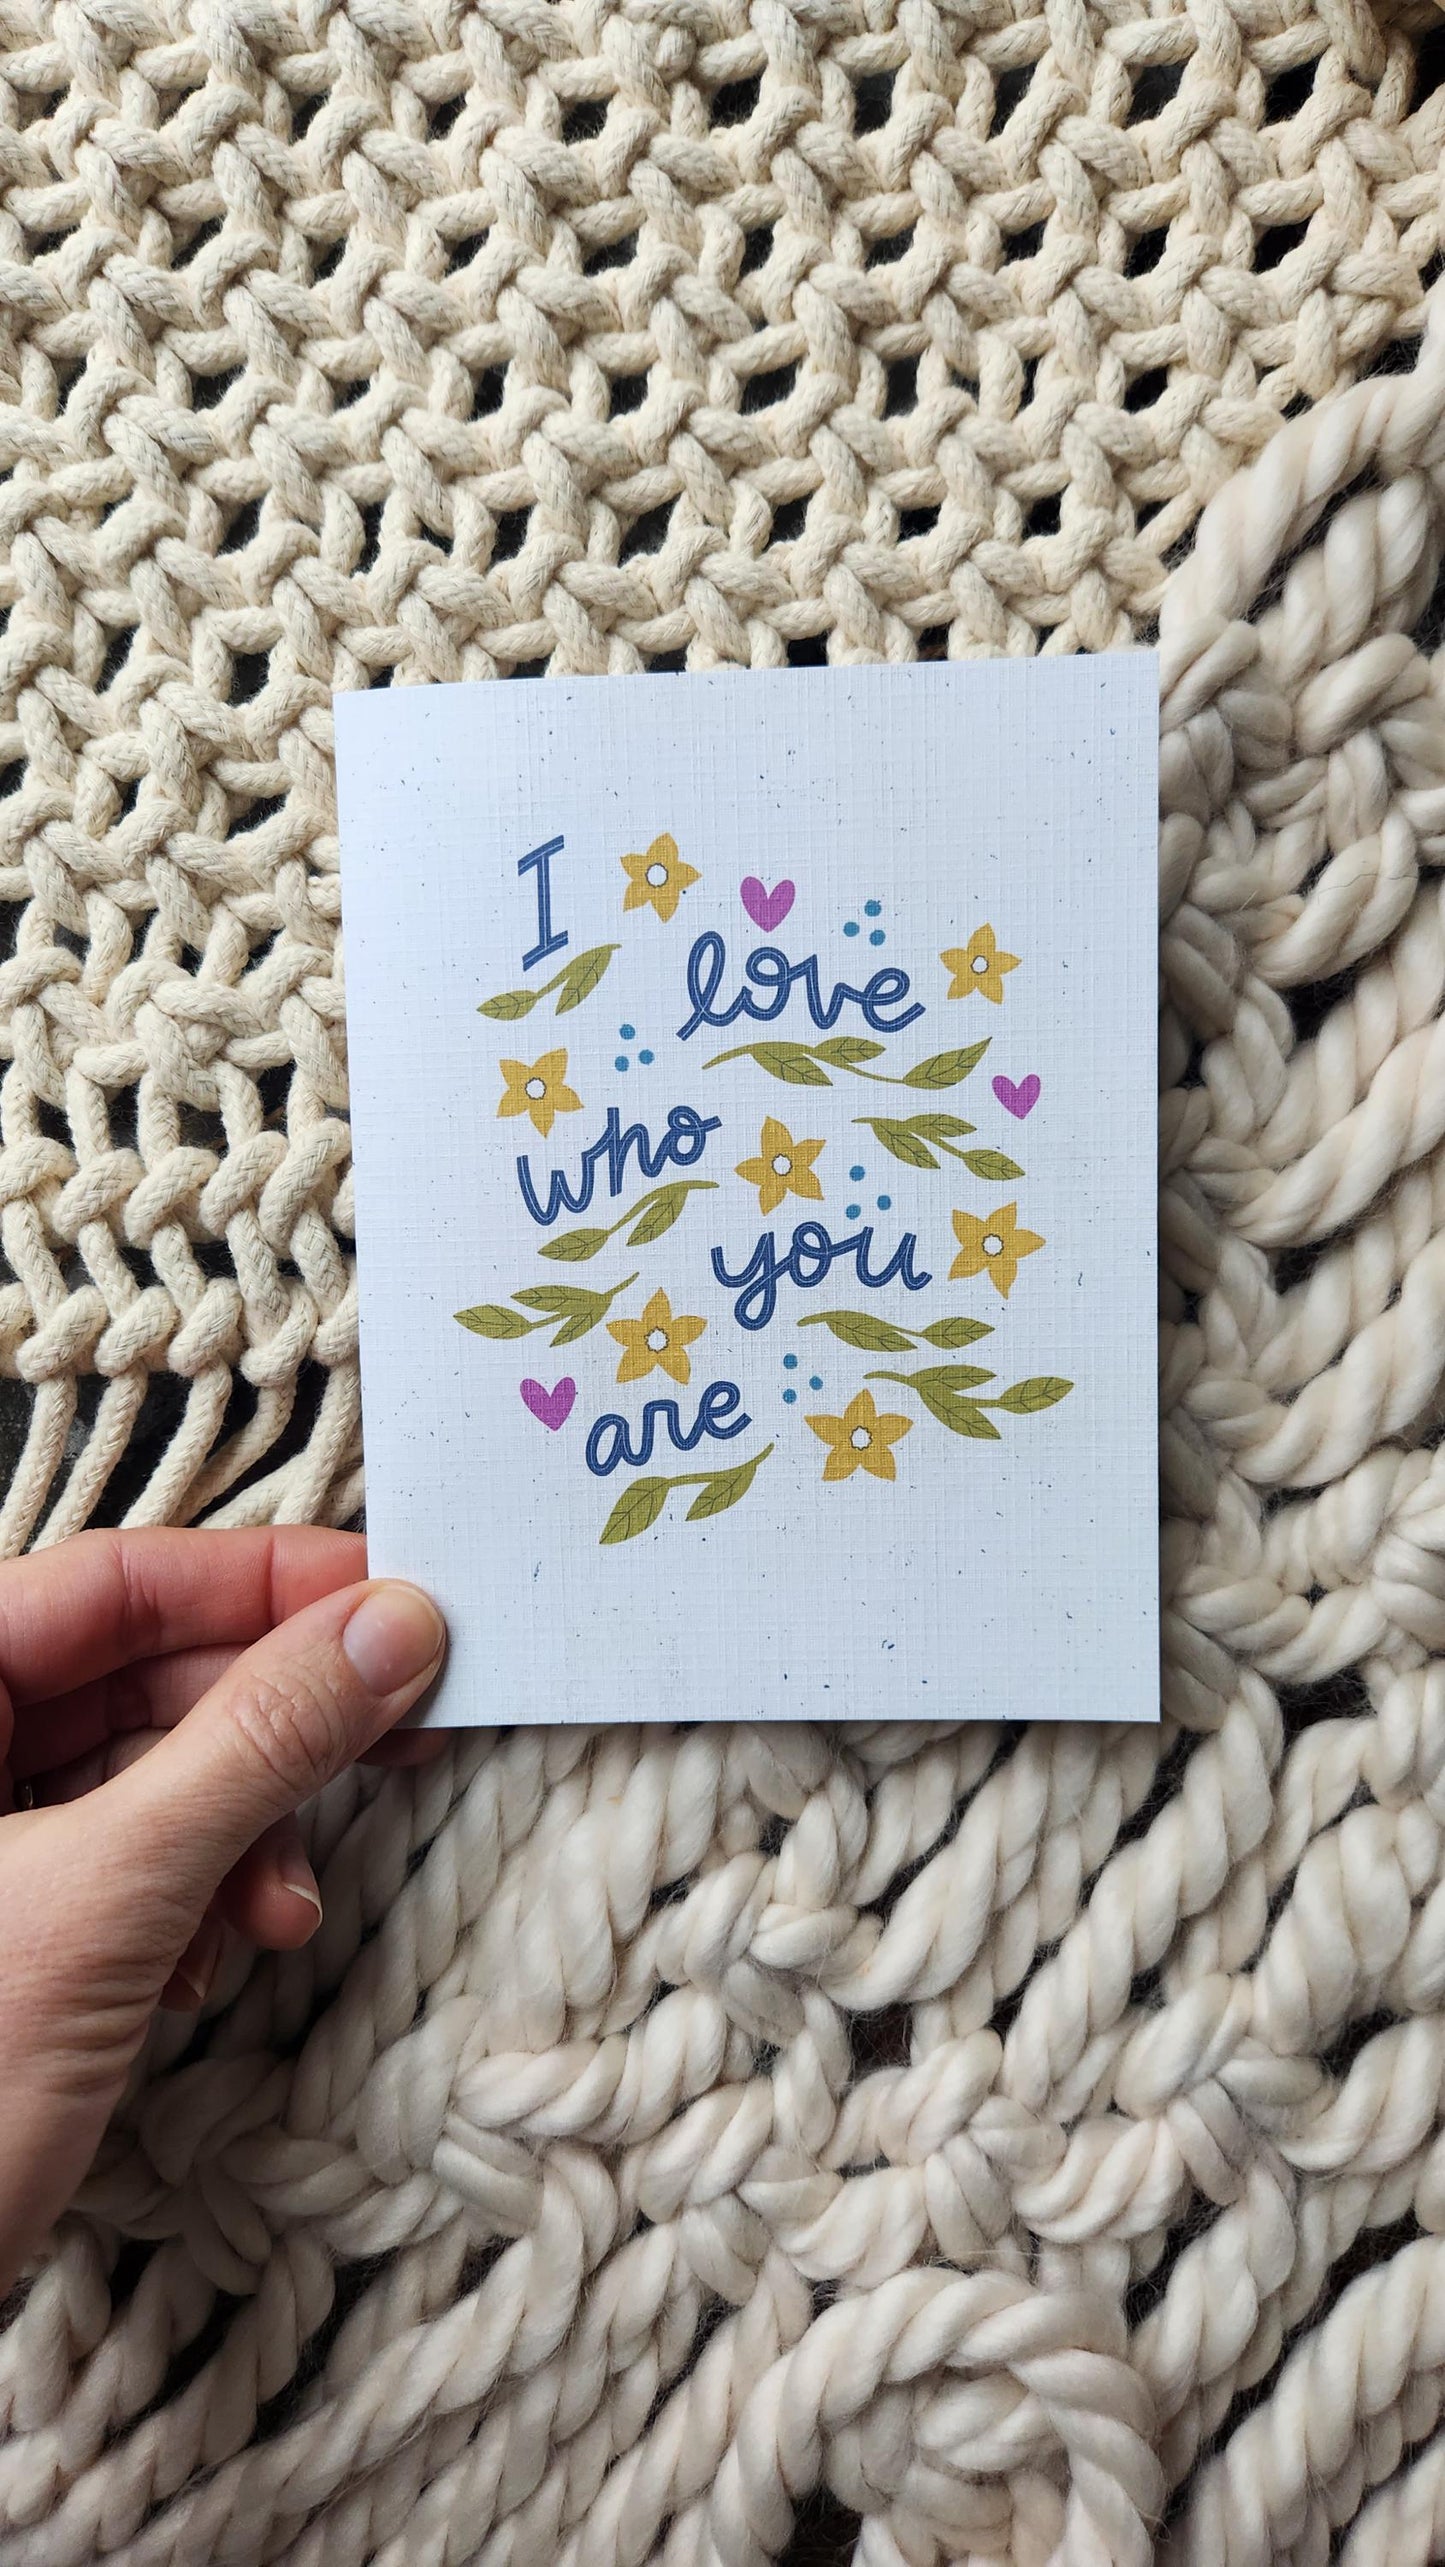 I
love
who
you
are